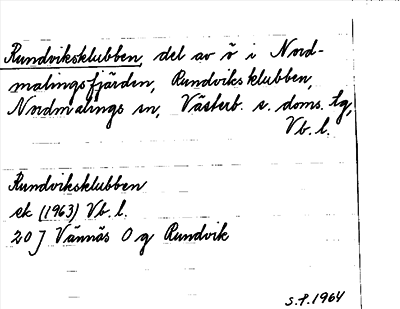 Rundviksklubben, del av ö i Nord-
malingsfjärden, Rundviksklubben,
Nordmalings sn, Västerb. s. doms. tg,
Vb. l.
Rundviksklubben
ek (1963) Vb. l.
20 J Vännäs O g Rundvik
S.P. 1964